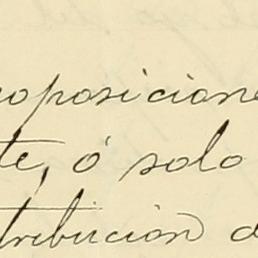 roposicione
te, ó solo
tribucion d